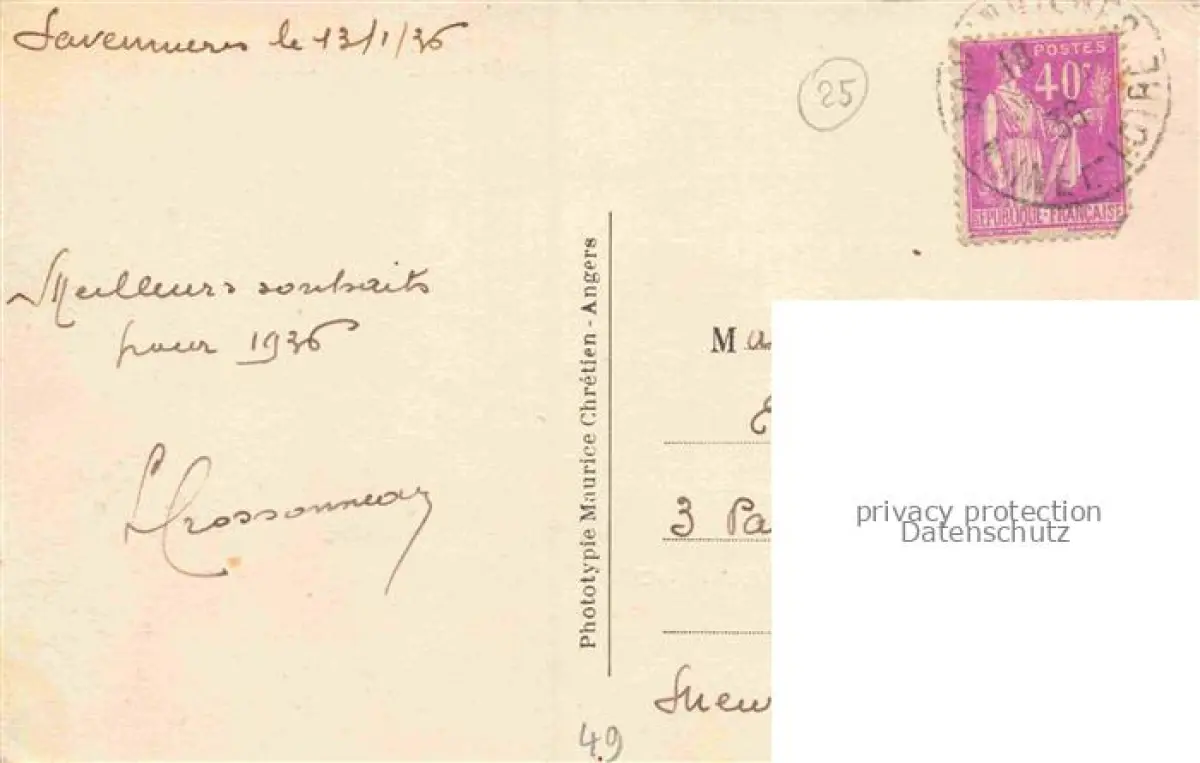 Savennières le 13/1/36
25
POSTES
40c
RÉPUBLIQUE-FRANÇAISE
36
LOIRE
Meilleurs souhaits
pour 1936
Phototypie Maurice Chrétien - Angers
M
3 Pa
privacy protection
Datenschutz
49